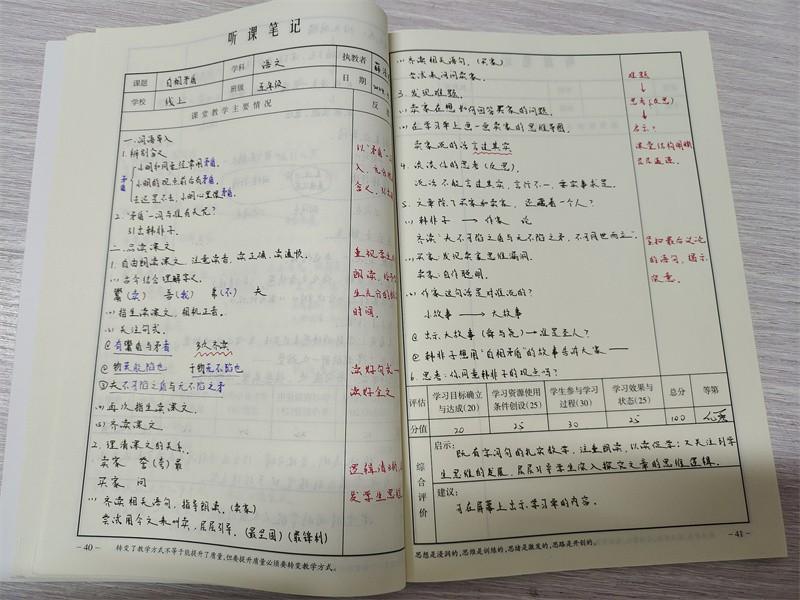 听课笔记
课题 自相矛盾 学科 语文 执教者
学校 线上 班级 五年级 日期
课堂教学主要情况 反
一.词语导入
1.辨别含义
矛盾
小明和同桌经常闹矛盾。
小明的观点前后有矛盾。
去还是不去,小明心里很矛盾。
2."矛盾"一词与谁有关呢?
引出韩非子。
二.品读课文
1.自由朗读课文,注意读音,读正确、读通顺。
(1)古今结合理解字义。
鬻(卖) 吾(我) 弗(不) 夫
(2)指生读课文,相机正音。
(3)关注句式。
①有鬻盾与矛者 多次齐读
②物莫能陷也 于物无不陷也
③夫不可陷之盾与无不陷之矛
(4)再次指生读课文。
(5)齐读课文。
2.理清课文的关系。
卖家 誉(夸)最
买家 问
(1)齐读相关语句,指导朗读。(卖家)
尝试用今文来叫卖,层层引导。(最坚固)(最锋利)
以"矛盾"
入,
含义,
重视学生
朗读,
生充分的
时间。
读好句式
读好全文
逻辑清晰
发学生思维
- 40 - 转变了教学方式不等于就提升了质量,但要提升质量必须要转变教学方式。
(2)齐读相关语句。(买家)
尝试来问问卖家。
3.发现难题。
(1)卖家在想如何回答买家的问题。
(2)在学习单上画一画卖家的思维导图。
卖家说的话言过其实
4.谈谈你的思考(反思)。
说话不能言过其实,言行不一,要实事求是。
5.文章除了买家和卖家,还藏着一个人?
(1)韩非子 → 作家 论
齐读"夫不可陷之盾与无不陷之矛,不可同世而立"。
(2)买家:发现卖家思维漏洞。
卖家:自作聪明。
(3)作家这句话是对谁说的?
小故事 → 大故事
①出示大故事(舜与尧)→谁是圣人?
②韩非子想用"自相矛盾"的故事告诉大家——
6.思考:你同意韩非子的观点吗?
难题
↓
思考(反思)
↓
启示?
课堂结构明晰
层层递进。
紧扣最后议论
的语句,揭示
寓意。
评估 学习目标确立与达成(20) 学习资源使用条件创设(25) 学生参与学习过程(30) 学习效果与状态(25) 总分 等第
分值 20 25 30 25 100 优秀
综合评价
启示:
既有字词句的扎实教学,注重朗读,以读促学;又关注到学
生思维的发展,层层引导学生深入探究文章的思维逻辑。
建议:
可在屏幕上出示学习单的内容。
思想是浸润的,思维是训练的,思绪是激发的,思路是开创的。 - 41 -